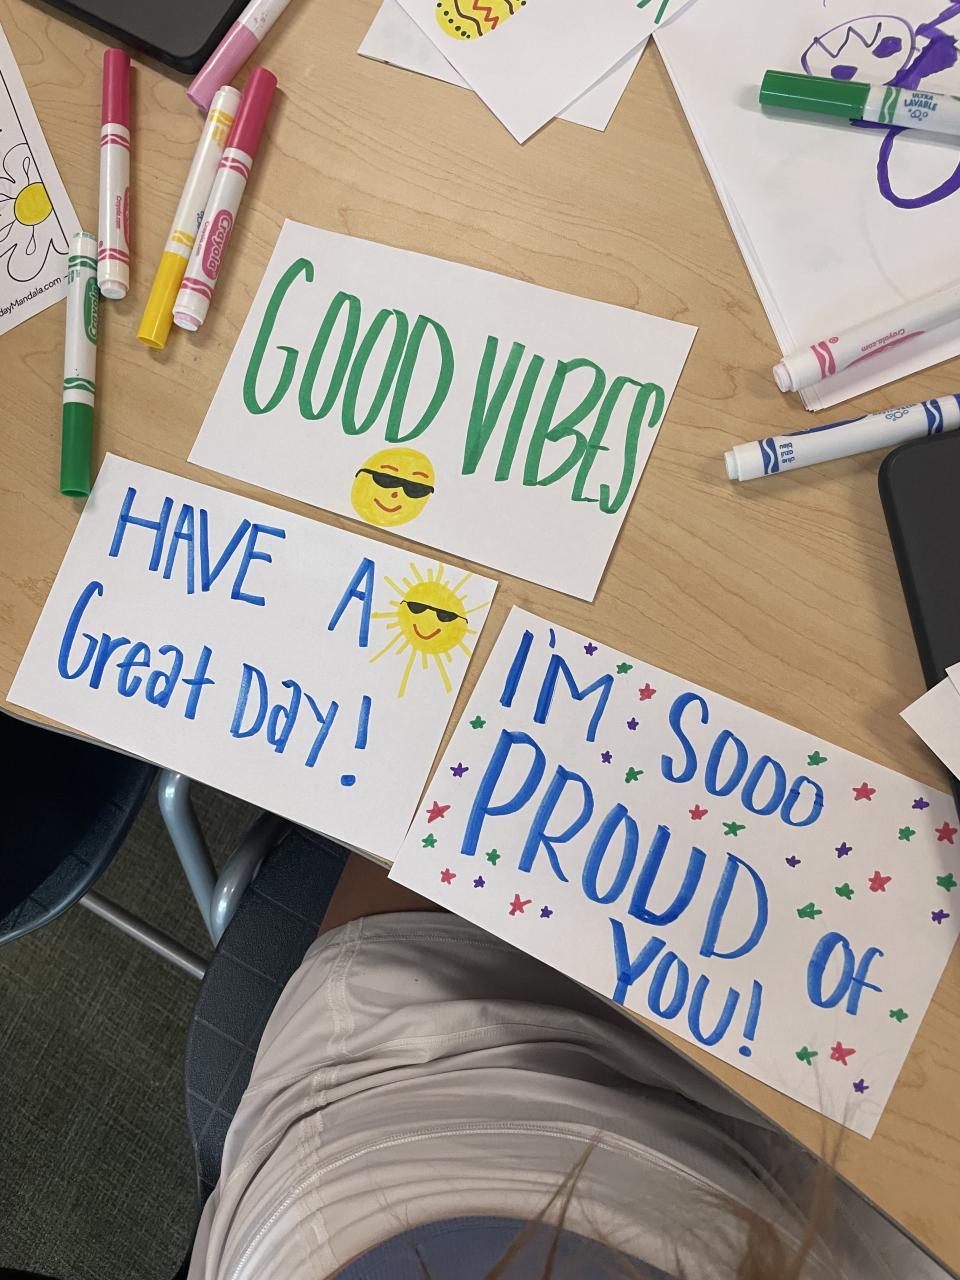 GOOD VIBES
HAVE A
Great Day!
I'M SOOO
PROUD OF
YOU!
Crayola
Crayola.com
Crayola
Crayola
Crayola.com
ULTRA
LAVABLE
blue
azul
bleu
dayMandala.com